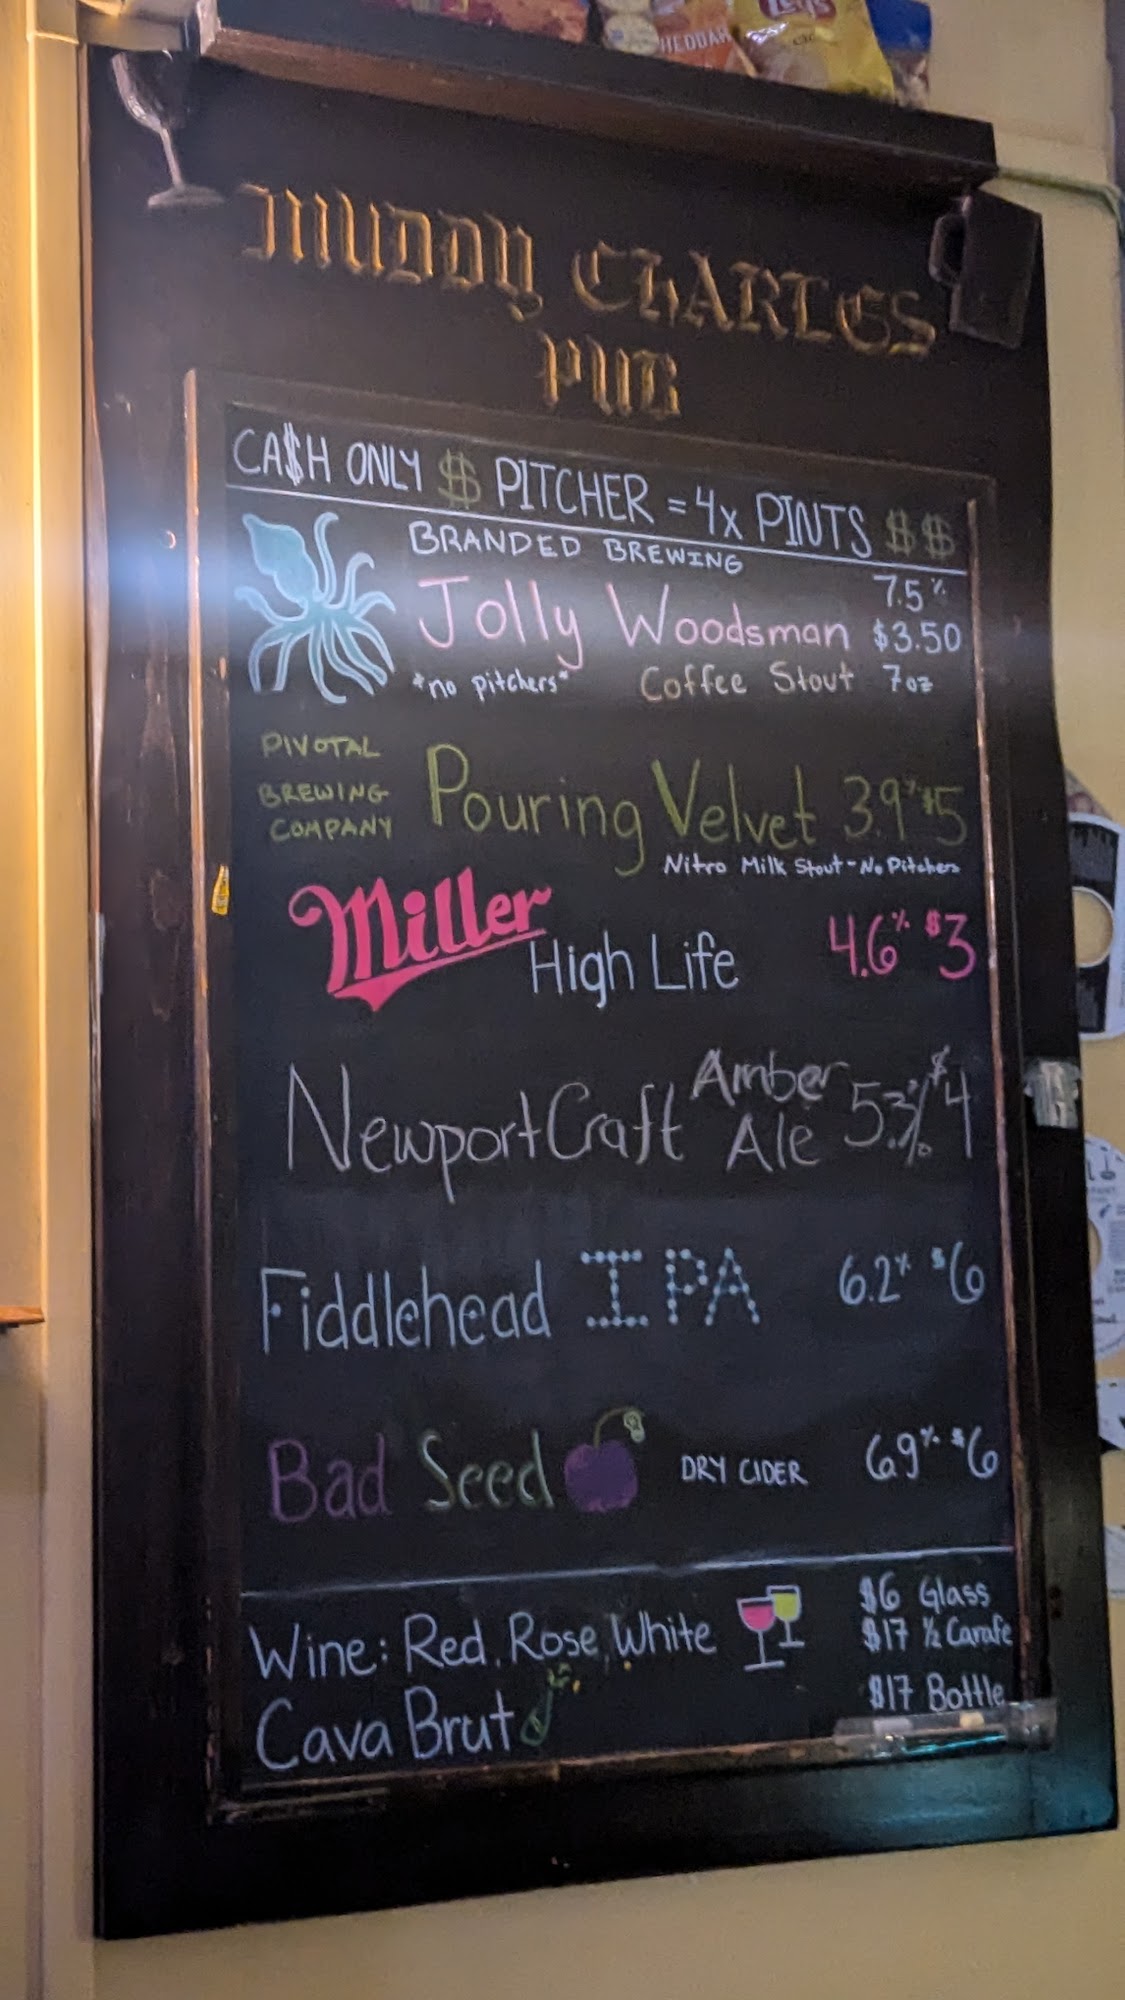 Lay's
HEDDAR
MUDDY CHARLES
PUB
CA$H ONLY $ PITCHER = 4x PINTS $$
BRANDED BREWING
Jolly Woodsman 7.5% $3.50
*no pitchers* Coffee Stout 7oz
PIVOTAL
BREWING
COMPANY
Pouring Velvet 3.9% $5
Nitro Milk Stout - No Pitchers
Miller
High Life 4.6% $3
Newport Craft Amber Ale 5.3% $4
Fiddlehead IPA 6.2% $6
Bad Seed DRY CIDER 6.9% $6
Wine: Red, Rose, White $6 Glass
$17 ½ Carafe
Cava Brut $17 Bottle